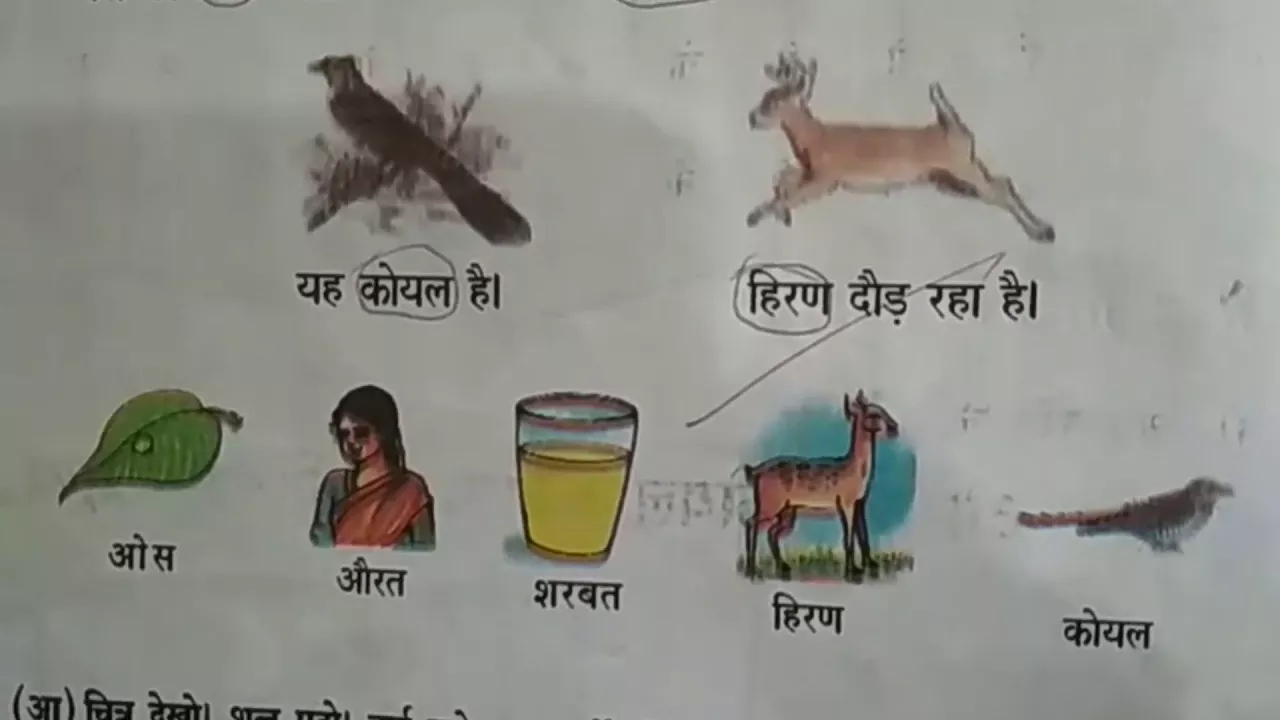 यह कोयल है।
हिरण दौड़ रहा है।
ओस
औरत
शरबत
हिरण
कोयल
(आ) चित्र देखो।